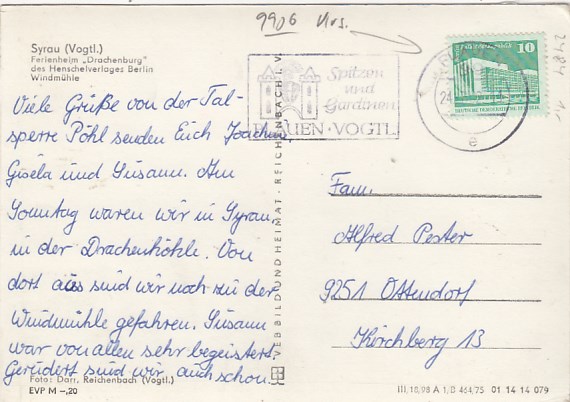 9906 Urs.
2484
Syrau (Vogtl.)
Ferienheim „Drachenburg"
des Henschelverlages Berlin
Windmühle
Viele Grüße von der Tal-
sperre Pöhl senden Euch Joachim,
Gisela und Susann. Am
Sonntag waren wir in Syrau
in der Drachenhöhle. Von
dort aus sind wir noch zu der
Windmühle gefahren. Susann
war von allen sehr begeistert.
Gerudert sind wir auch schon.
Foto: Darr, Reichenbach (Vogtl.)
EVP M –,20
VEB BILD UND HEIMAT · REICHENBACH I. V.
Spitzen
und
Gardinen
PLAUEN · VOGTL
24
e
10
Fam.
Alfred Pester
9251 Ottendorf
Kirchberg 13
III,18,98 A 1/B 464/75 01 14 14 079